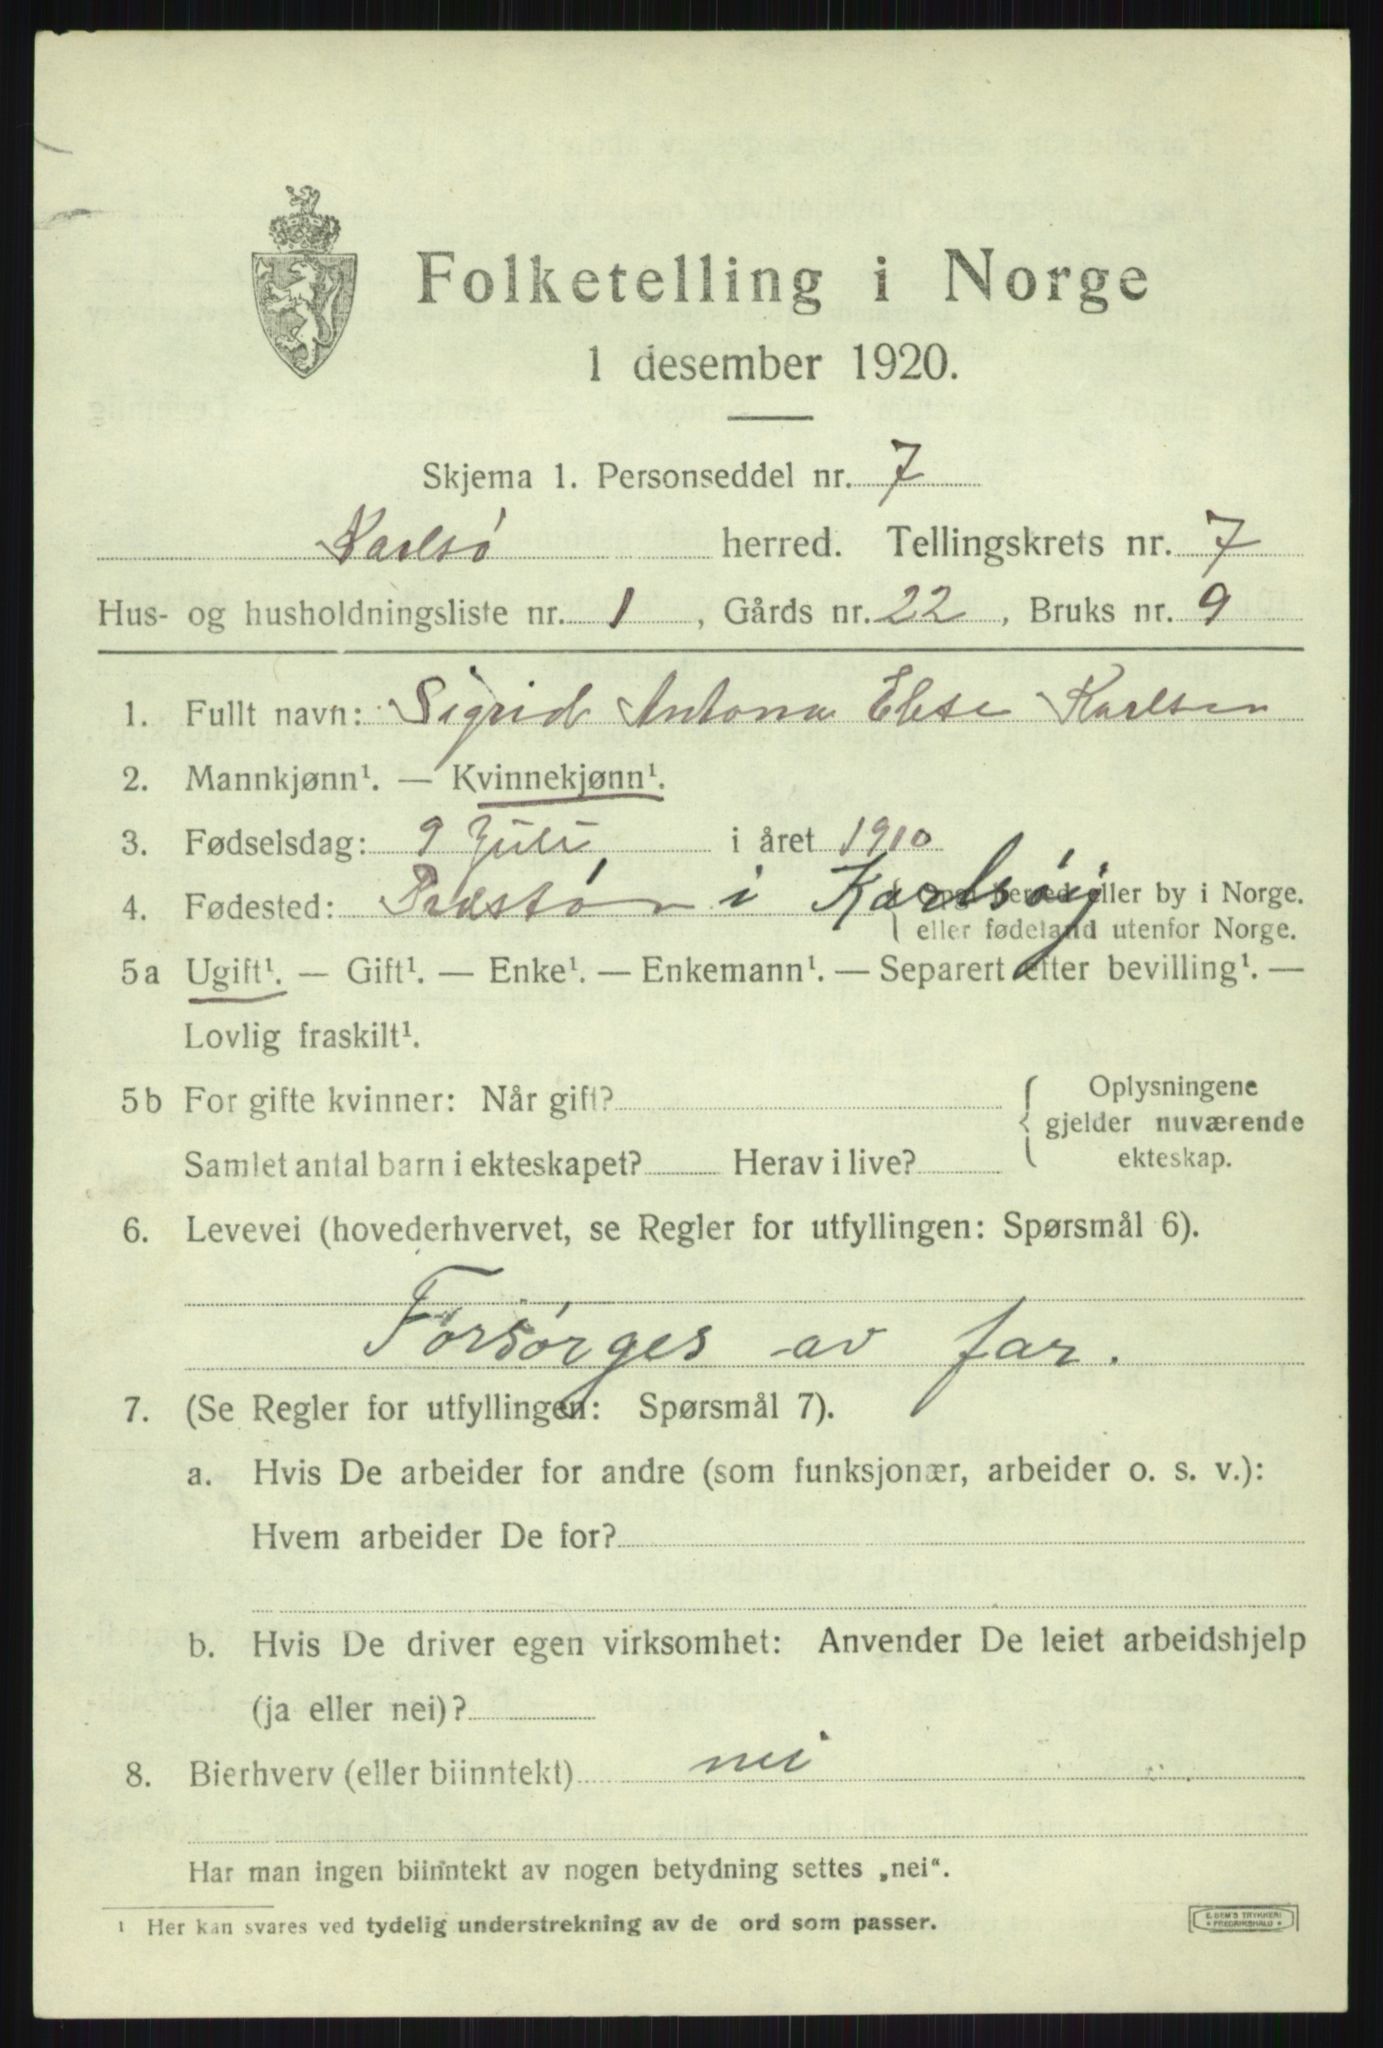 Folketelling i Norge
1 desember 1920.
Skjema 1. Personseddel nr. 7
Karlsø herred. Tellingskrets nr. 7
Hus- og husholdningsliste nr. 1, Gårds nr. 22, Bruks nr. 9
1. Fullt navn: Sigrid Antona Karlsen
2. Mannkjønn¹. — Kvinnekjønn¹.
3. Fødselsdag: 9 Juli i året 1910
4. Fødested: i Karlsøy { Opgi herred eller by i Norge.
eller fødeland utenfor Norge.
5a Ugift¹. — Gift¹. — Enke¹. — Enkemann¹. — Separert efter bevilling¹. —
Lovlig fraskilt¹.
5b For gifte kvinner: Når gift? { Oplysningene
gjelder nuværende
Samlet antal barn i ekteskapet? Herav i live? ekteskap.
6. Levevei (hovederhvervet, se Regler for utfyllingen: Spørsmål 6).
Forsørges av far.
7. (Se Regler for utfyllingen: Spørsmål 7).
a. Hvis De arbeider for andre (som funksjonær, arbeider o. s. v.):
Hvem arbeider De for?
b. Hvis De driver egen virksomhet: Anvender De leiet arbeidshjelp
(ja eller nei)?
8. Bierhverv (eller biinntekt) nei
Har man ingen biinntekt av nogen betydning settes „nei“.
¹ Her kan svares ved tydelig understrekning av de ord som passer.
E. SEM'S TRYKKERI
FREDRIKSHALD